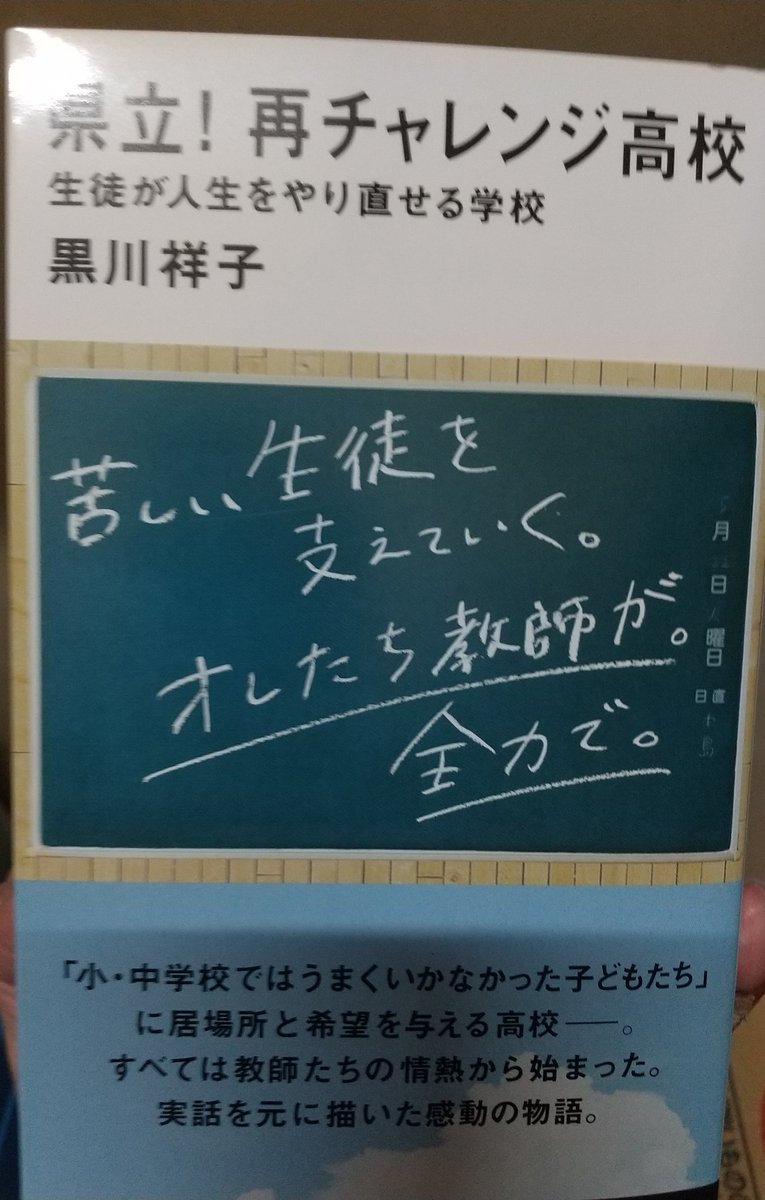 県立！再チャレンジ高校
生徒が人生をやり直せる学校
黒川祥子
苦しい生徒を
支えていく。
オレたち教師が。
全力で。
月
日
曜日
日直
「小・中学校ではうまくいかなかった子どもたち」
に居場所と希望を与える高校――。
すべては教師たちの情熱から始まった。
実話を元に描いた感動の物語。